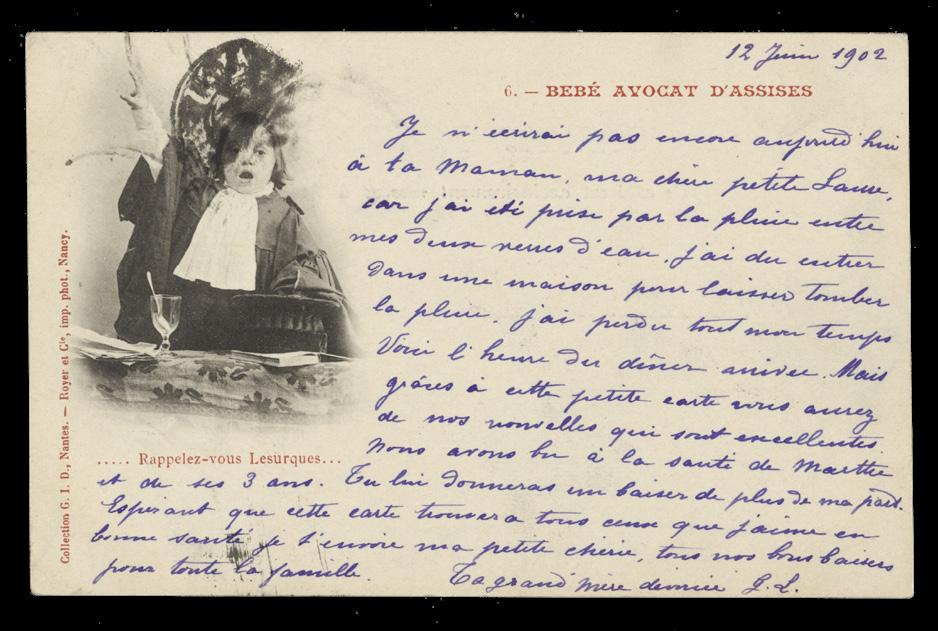 12 Juin 1902
6. — BEBÉ AVOCAT D'ASSISES
Je n'écrirai pas encore aujourd'hui
à ta Maman, ma chère petite Laure,
car j'ai été prise par la pluie entre
mes deux verres d'eau, j'ai du entrer
dans une maison pour laisser tomber
la pluie. j'ai perdu tout mon temps
Voici l'heure du dîner arrivée. Mais
grâces à cette petite carte vous aurez
de nos nouvelles qui sont excellentes.
Nous avons bu à la santé de Marthe
et de ses 3 ans. Tu lui donneras un baiser de plus de ma part.
Espérant que cette carte trouvera tous ceux que j'aime en
bonne santé je t'envoie ma petite chérie, tous nos bons baisers
pour toute la famille.
Ta grand'mère G. L.
..... Rappelez-vous Lesurques...
Collection G. I. D., Nantes. — Royer et Cie, imp. phot., Nancy.